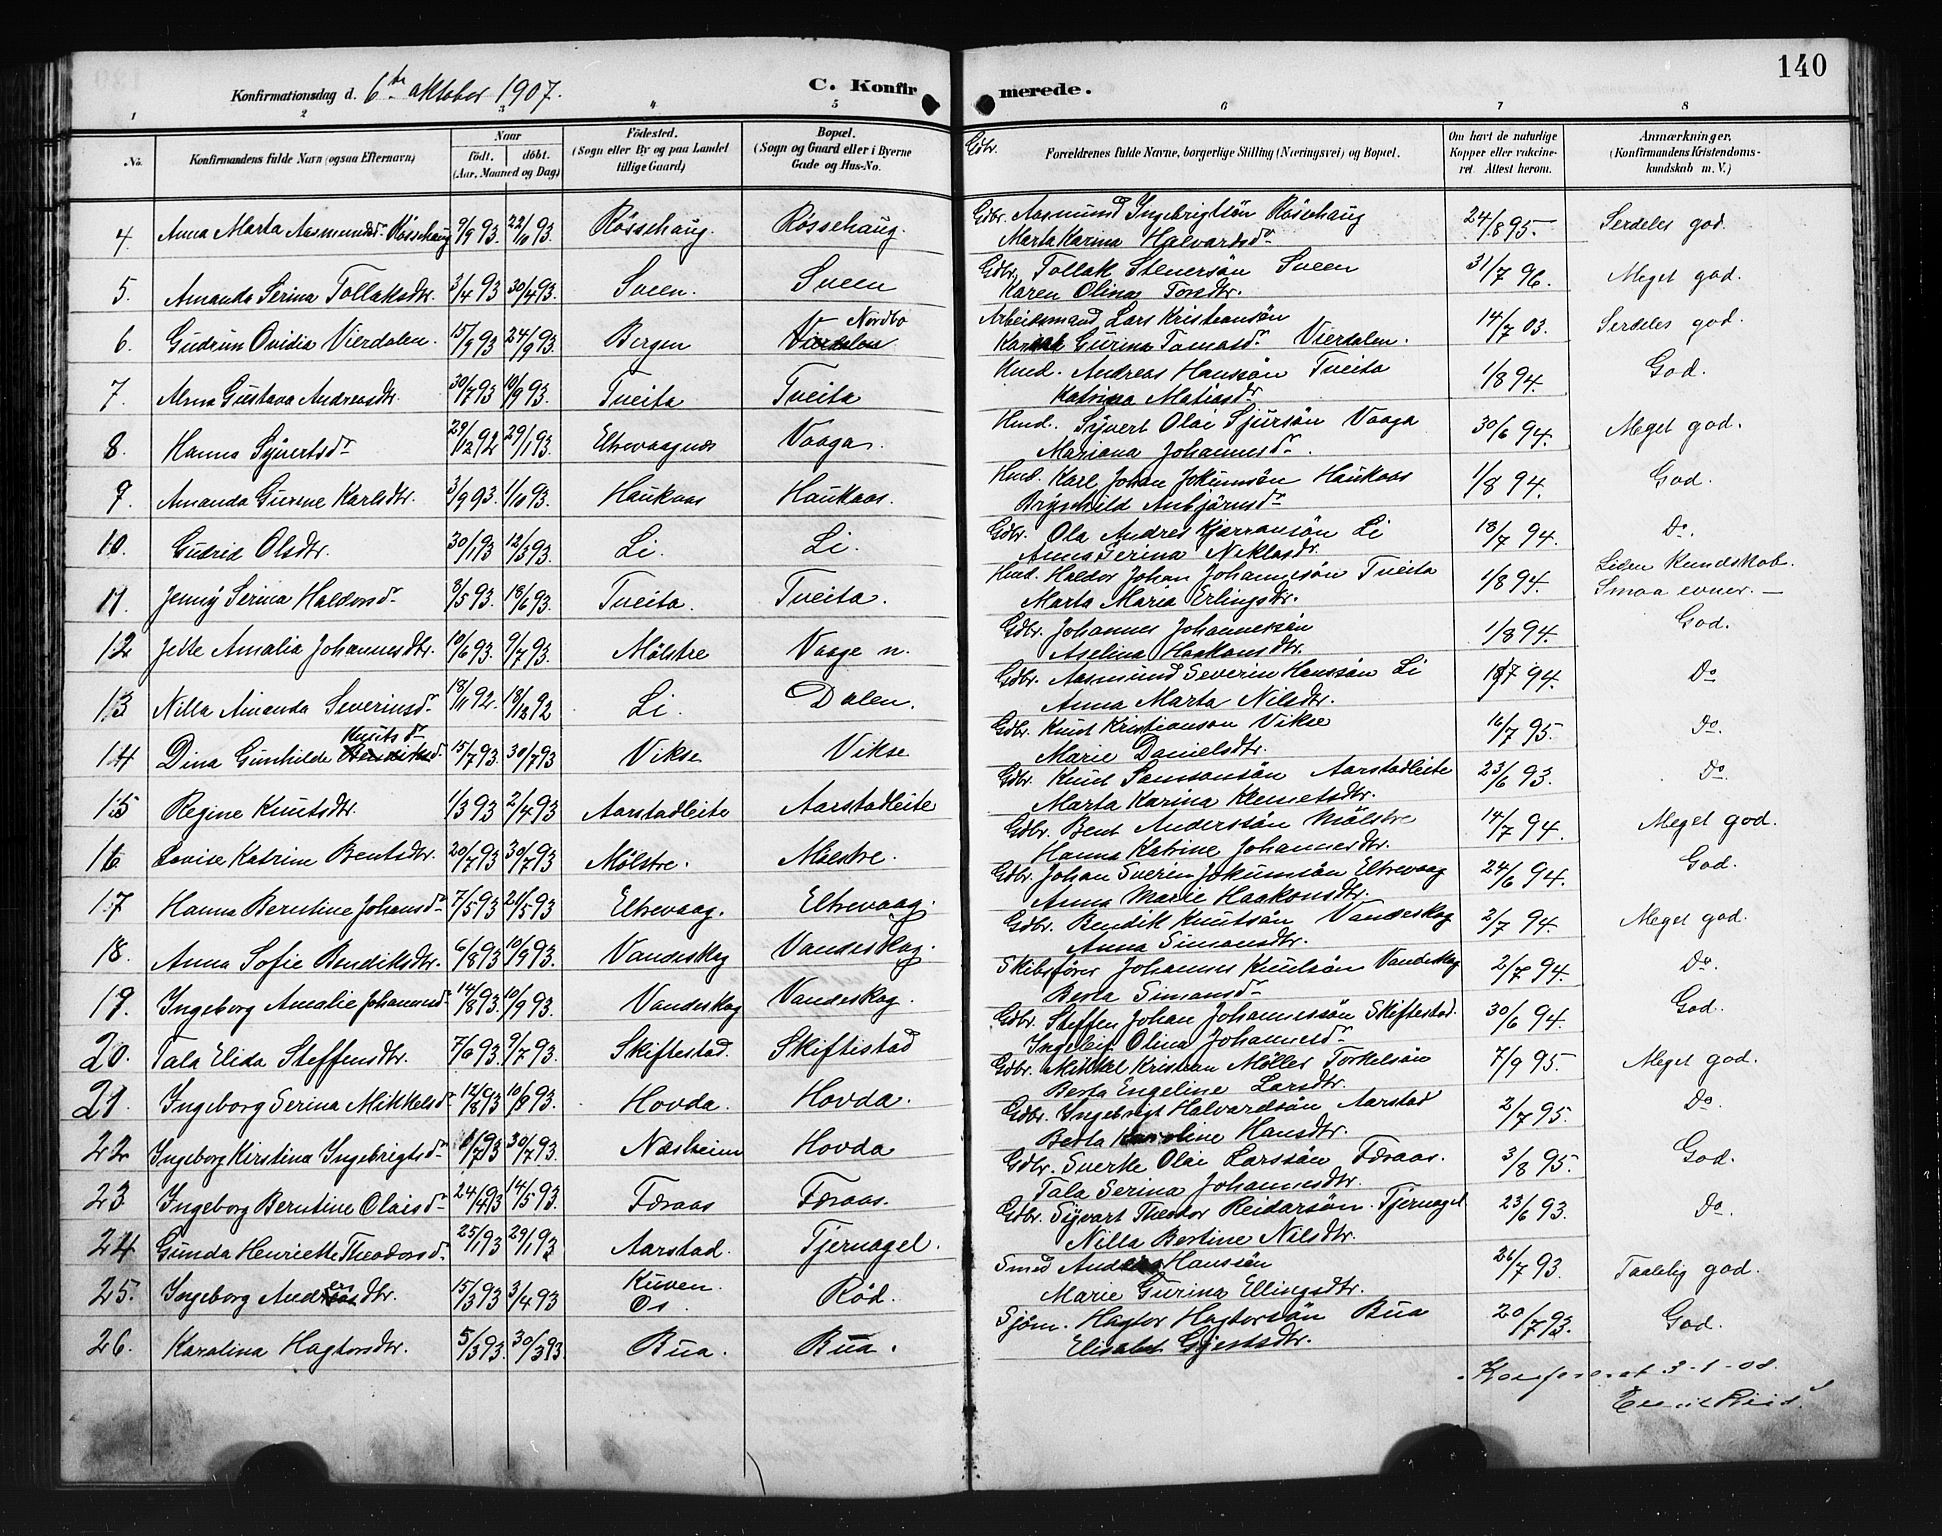 140
Konfirmationsdag d. 6te oktober 1907. C. Konfirmerede.
1 2 3 4 5 6 7 8
No. Konfirmandens fulde Navn (ogsaa Efternavn) Naar født, døbt. (Aar, Maaned og Dag) Fødested. (Sogn eller By og paa Landet tillige Gaard) Bopæl. (Sogn og Gaard eller i Byerne Gade og Hus-No. Gbr. Forældrenes fulde Navne, borgerlige Stilling (Næringsvei) og Bopæl. Om havt de naturlige Kopper eller vaccineret. Attest herom. Anmærkninger. (Konfirmandens Kristendomskundskab m. V.)
4 Anna Marta Aasmundsdr. Røssehaug 9/9 93. 22/10 93. Røssehaug. Røssehaug. Gdbr. Aasmund Ingebrigtsøn Røssehaug 24/8 95. Serdeles god.
Marta Karina Halvardsdr.
5. Amanda Serina Tollaksdtr. 3/4 93 30/4 93. Sveen. Sveen Gdbr. Tollak Stenersøn Sveen 31/7 96. Meget god.
Karen Olina Torsdtr.
6. Gudrun Ovidia Vierdalen. 15/9 93 24/9 93. Bergen Vierdalen Nordbø Arbeidsmand Lars Kristiansøn 14/7 03. Serdeles god.
Gurina Tomasdr. Vierdalen.
7. Alma Gustava Andreasdtr. 30/7 93 10/9 93. Tveita Tveita Husmd. Andreas Hansøn Tveita 1/8 94. God.
Katrina Matiasdr
8. Hanna Syvertsdr 29/12 92 29/1 93. Eltrevaagnes Vaaga. Husmd. Syvert Olai Sjursøn Vaaga 30/6 94. Meget god.
Mariana Johannesdr.
9. Amanda Gurine Karlsdtr. 3/9 93. 1/10 93. Haukaas Haukaas. Husmd. Karl Johan Jokumsøn Haukaas 1/8 94. God.
Brynhild Anbjørnsdr
10. Gudrid Olsdtr. 30/1 93 12/3 93. Li. Li. Gdbr. Ola Andreas Kjerransøn Li 18/7 94. Do.
Anna Serina Niklasdr.
11. Jenny Serina Haldorsdr 3/5 93. 18/6 93. Tveita. Tveita. Husmd. Haldor Johan Johannesøn Tveita 1/8 94. Liden Kundskab. Smaa evner. —
Marta Maria Erlingsdtr.
12 Jette Amalia Johannesdtr. 10/6 93. 9/7 93. Mølstre Vaage n. Gdbr. Johannes Johannessøn 1/8 94. God.
Aselina Haakonsdtr.
13 Nilla Amanda Severinsdr 18/11 92. 18/12 92 Li. Dalen. Gdbr. Aasmund Severin Hansøn Li 18/7 94. Do
Anna Marta Nilsdtr.
14 Dina Gunhilde Knutsdr 15/7 93. 30/7 93 Vikse Vikse Gdbr. Knut Kristianson Vikse 16/7 95. Do.
Marie Danielsdtr.
15 Regine Knutsdtr. 1/3 93 2/4 93 Aarstadleite Aarstadleite Gdbr. Knut Samsonsøn Aarstadleite 23/6 93. Do.
Marta Karina Klemetsdtr.
16 Lovise Katrine Bentsdtr. 20/7 93 30/7 93 Mølstre. Mølstre. Gdbr. Bent Anderssøn Mølstre 14/7 94. Meget god.
Hanna Katrine Johannesdtr.
17 Hanna Berntine Johansdr 7/5 93 21/5 93 Eltrevaag. Eltrevaag. Gdbr. Johan Sverin Jokumsøn Eltrevaag 24/6 94. God.
Anna Marie Haakonsdtr.
18. Anna Sofie Bendiksdtr. 6/8 93 10/9 93. Vandeskog Vandeskog. Gdbr. Bendik Knutsøn Vandeskog 2/7 94. Meget god.
Anna Simonsdtr.
19. Ingeborg Amalie Johannesdr 14/8 93. 10/9 93. Vandeskog Vandeskog. Skibsfører Johannes Knutsøn Vandeskog 2/7 94. Do.
Berta Simonsdr
20. Tala Elida Steffensdtr. 7/6 93. 9/7 93. Skiftestad. Skiftestad Gdbr. Steffen Johan Johannessøn Skiftestad. 30/6 94. God.
Ingeleif Olina Johannesdr
21. Ingeborg Serina Mikkelsdr 12/8 93 10/9 93. Hovda. Hovda. Gdbr. Mikkel Kristian Møller Torkelsøn 7/9 95. Meget god.
Berta Engeline Larsdtr.
22 Ingeborg Kirstina Ingebrigtsdr 30/7 93. Næsheim Hovda Gdbr. Ingebrigt Halvardsøn Aarstad 2/7 95. Do.
Berta Karoline Hansdtr.
23 Ingeborg Berntine Olaisdr 24/4 93 14/5 93. Færaas Færaas. Gdbr. Sverke Olai Larssøn Færaas. 3/8 95. God.
Tala Serina Johannesdtr.
24 Gunda Henriette Theodorsdr 25/1 93 29/1 93 Aarstad. Tjernagel. Gdbr. Syvart Theodor Reidarsøn Tjernagel 23/6 93. Do.
Nilla Bertine Nilsdtr.
25. Ingeborg Andreasdtr. 15/3 93 3/4 93 Kuven. Os. Rød. Smed Andreas Hansøn 26/7 93. Taalelig god.
Marie Gurina Ellingsdtr.
26. Karolina Hagtorsdtr. 5/3 93 30/3 93. Bua. Bua. Sjøm. Hagtor Hagtorsøn Bua 20/7 93. God.
Elisabet Gjestsdtr.
Konfererat 3-1-08.